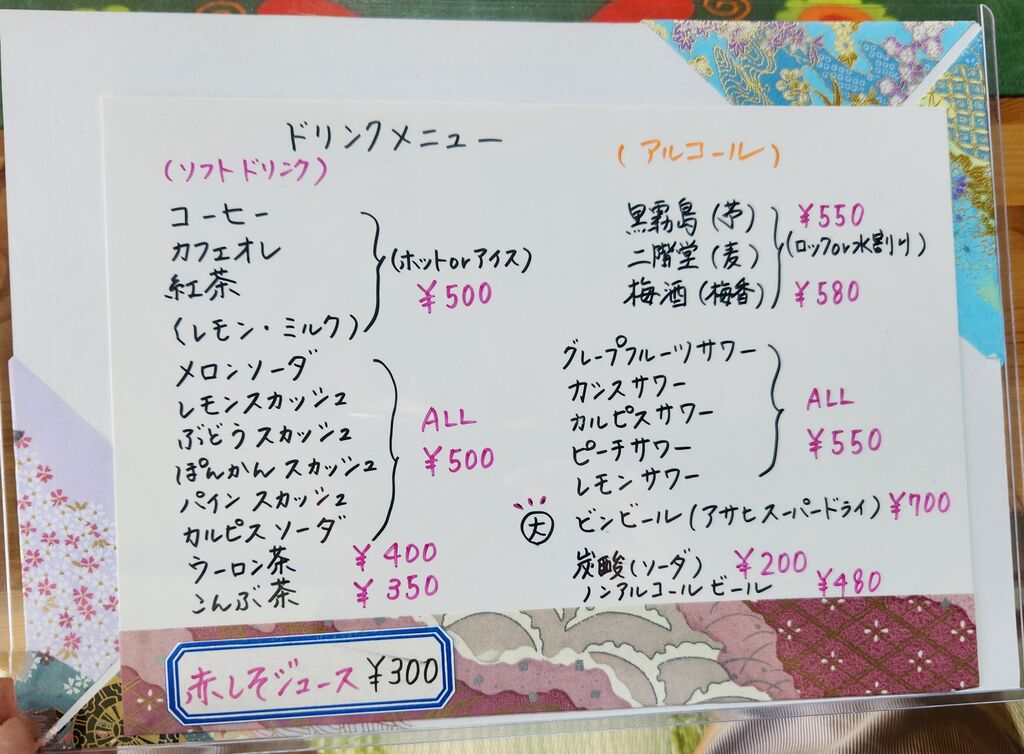 ドリンクメニュー
(ソフトドリンク)
コーヒー
カフェオレ
紅茶
(レモン・ミルク)
(ホットorアイス)
¥500
メロンソーダ
レモンスカッシュ
ぶどうスカッシュ
ぽんかんスカッシュ
パインスカッシュ
カルピスソーダ
ALL
¥500
ウーロン茶 ¥400
こんぶ茶 ¥350
(アルコール)
黒霧島(芋) ¥550
二階堂(麦) (ロックor水割り)
梅酒(梅香) ¥580
グレープフルーツサワー
カシスサワー
カルピスサワー
ピーチサワー
レモンサワー
ALL
¥550
大 ビンビール(アサヒスーパードライ) ¥700
炭酸(ソーダ) ¥200
ノンアルコールビール ¥480
赤しそジュース ¥300